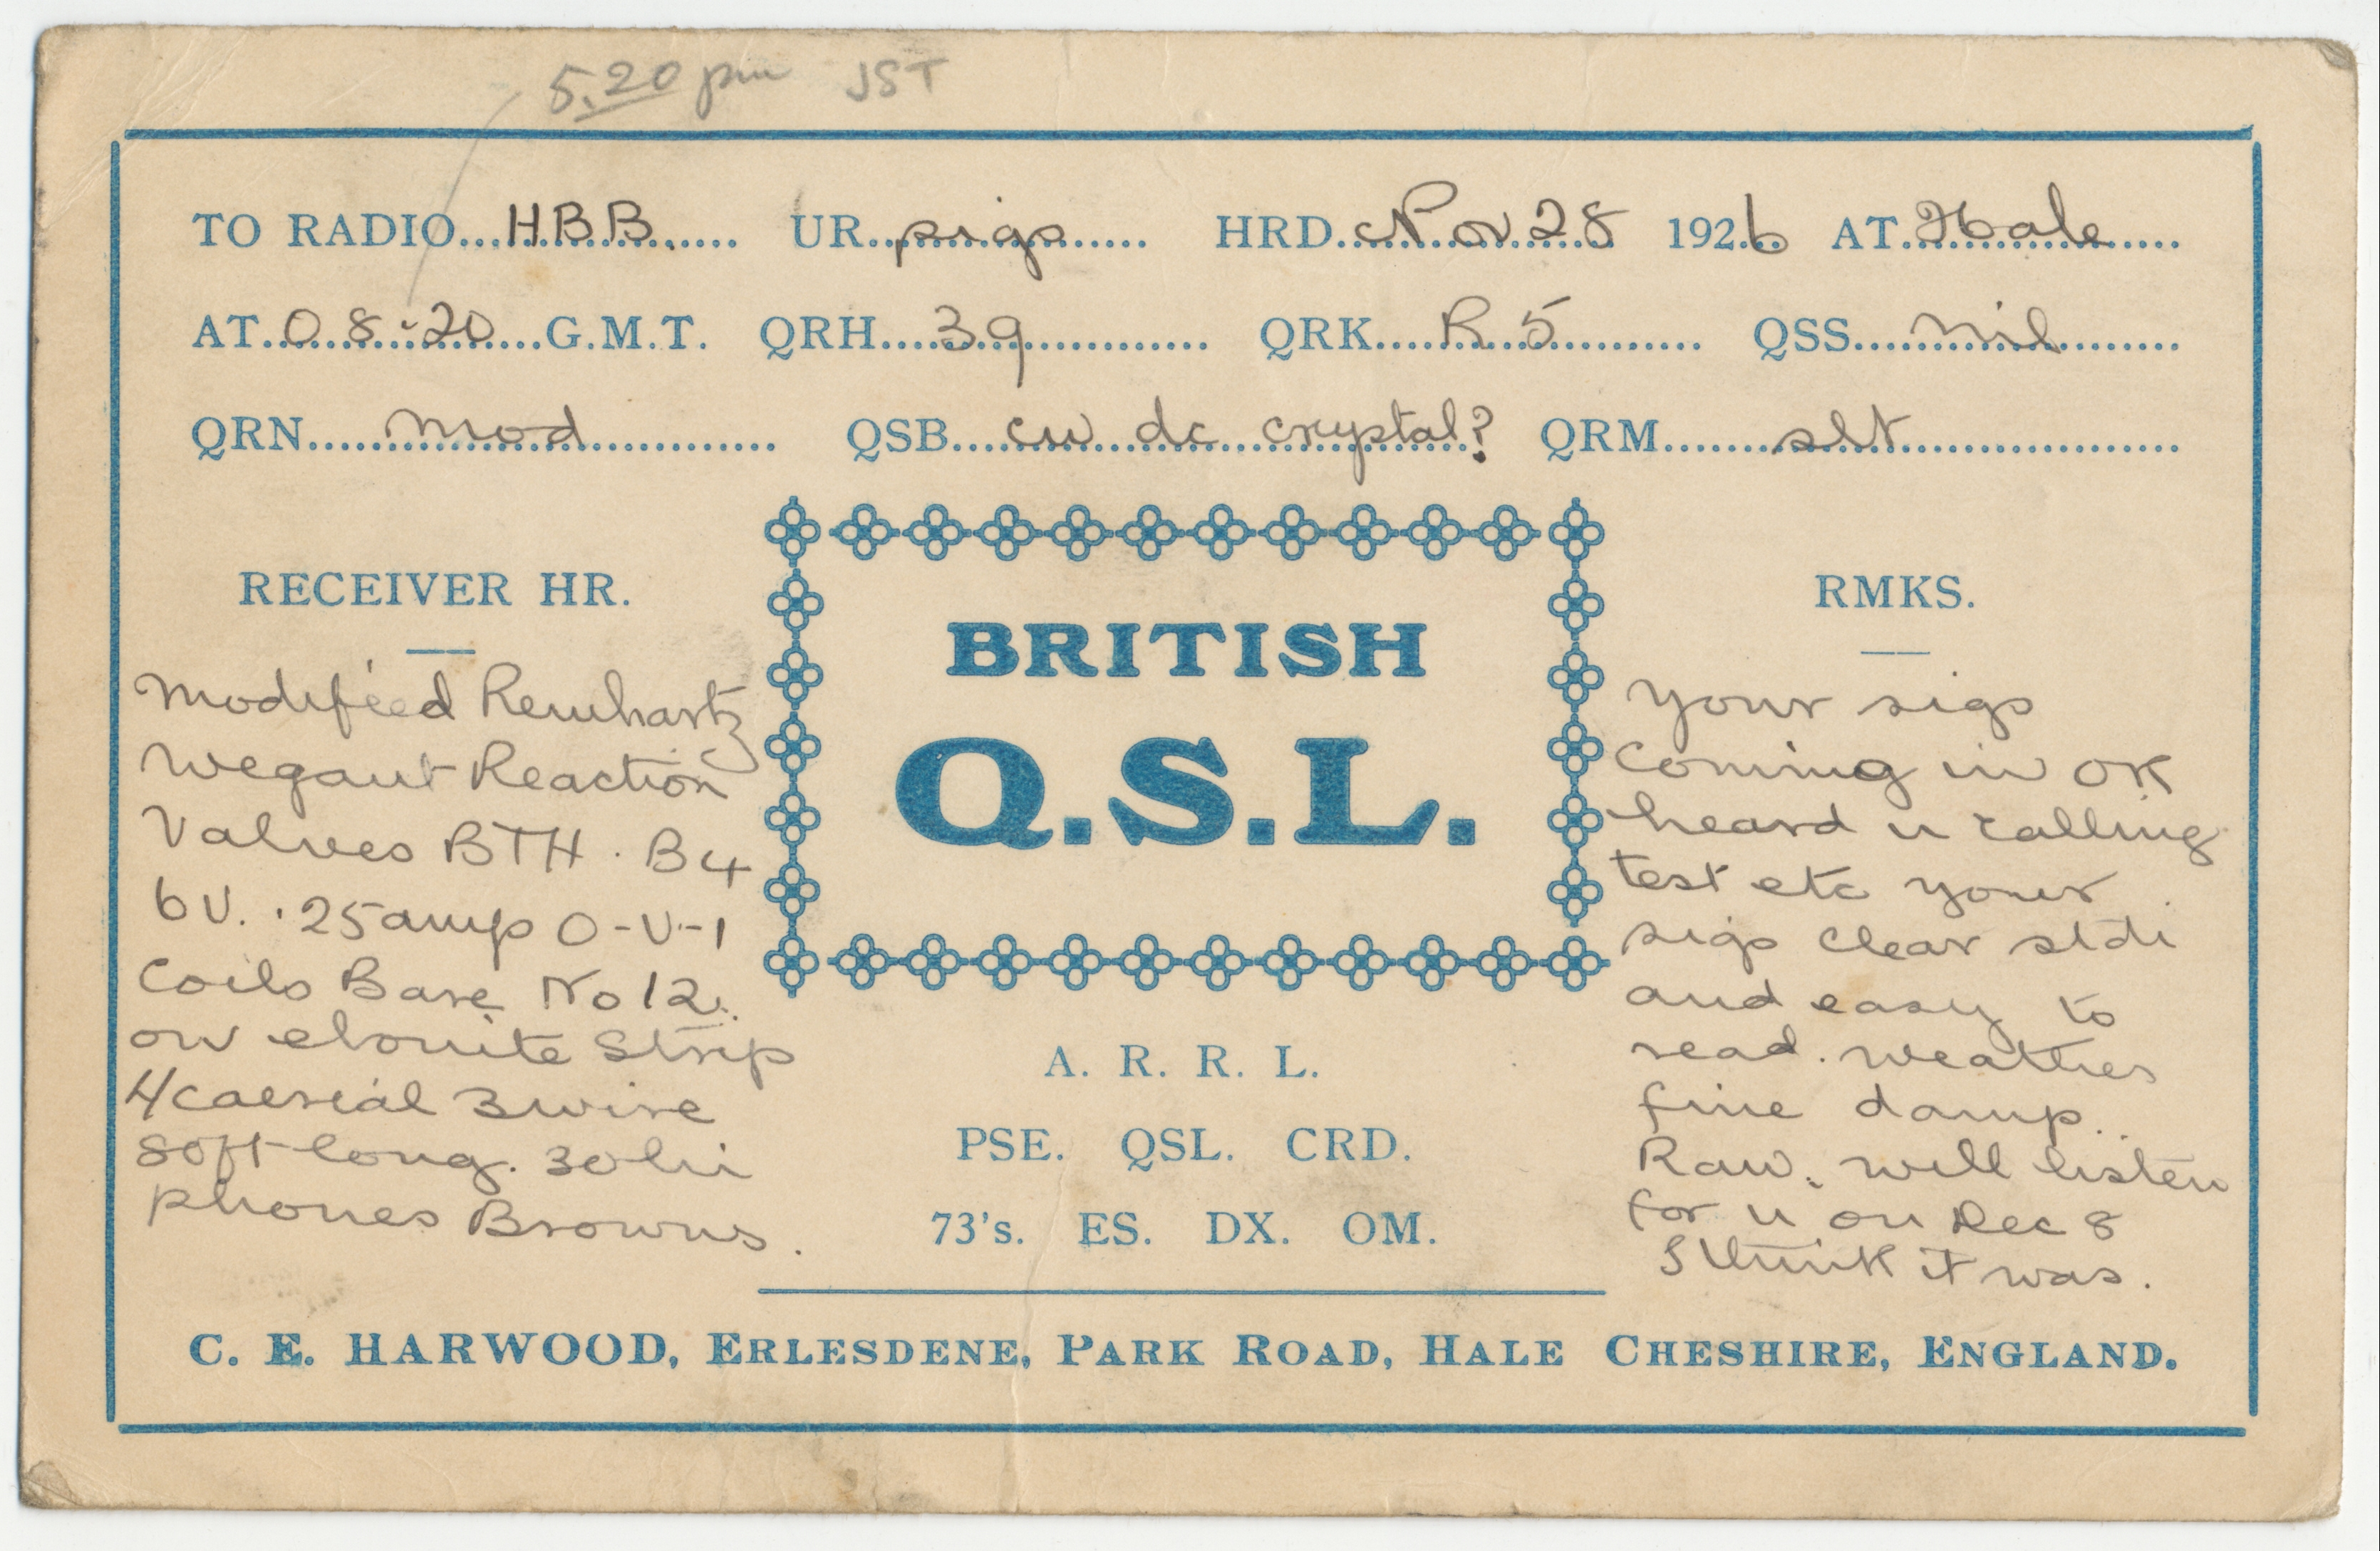 5.20 pm JST
TO RADIO...HBB....... UR..sigs...... HRD.Nov 28 1926 AT.Hale....
AT.08.20...G.M.T. QRH....39............ QRK....R.5.......... QSS....nil.......
QRN.....mod............. QSB....cw dc crystal? QRM.......slt..................
RECEIVER HR.
Modified Reinhartz
Wegant Reaction
Valves BTH. B4
6V. .25amp O-V-1
Coils Bare No 12.
on ebonite Strip
aerial 3 wire
50ft long. 30 hi
phones Browns.
BRITISH
Q.S.L.
A. R. R. L.
PSE. QSL. CRD.
73's. ES. DX. OM.
RMKS.
your sigs
coming in OK
heard u calling
test etc your
sigs clear stdi
and easy to
read. weather
fine damp.
Raw. will listen
for u on Dec 8
I think it was.
C. E. HARWOOD, ERLESDENE, PARK ROAD, HALE CHESHIRE, ENGLAND.